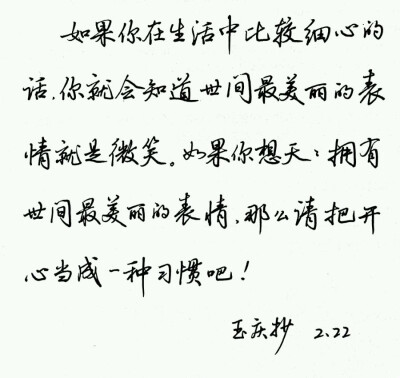 如果你在生活中比较细心的
话，你就会知道世间最美丽的表
情就是微笑。如果你想天：拥有
世间最美丽的表情，那么请把开
心当成一种习惯吧！
玉庆抄 2.22